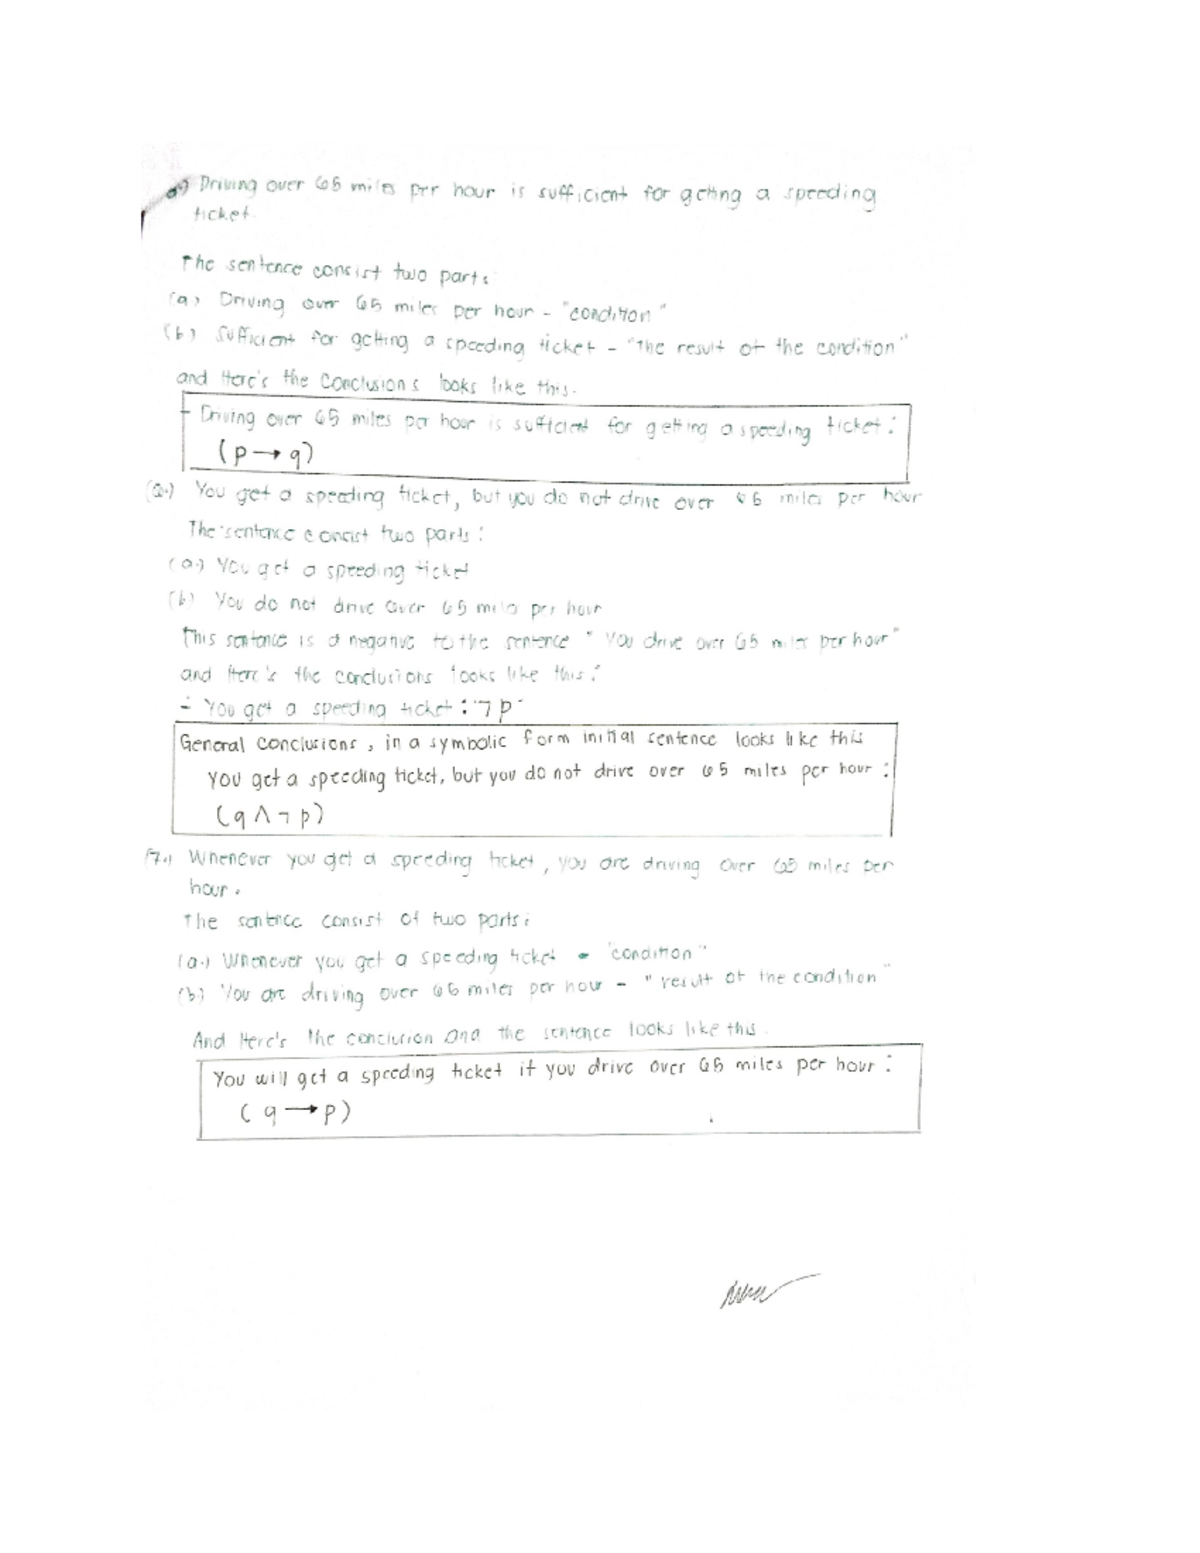 Driving over 65 miles per hour is sufficient for getting a speeding
ticket.
The sentence consist two parts:
(a) Driving over 65 miles per hour - "condition"
(b) Sufficient for getting a speeding ticket - "the result of the condition"
and Here's the conclusions looks like this.
- Driving over 65 miles per hour is sufficient for getting a speeding ticket:
(p → q)
You get a speeding ticket, but you do not drive over 65 miles per hour
The sentence consist two parts:
(a.) You get a speeding ticket
(b) You do not drive over 65 miles per hour
This sentence is a negative to the sentence "You drive over 65 miles per hour"
and Here's the conclusions looks like this:
- You get a speeding ticket: ¬p
General Conclusions, in a symbolic form initial sentence looks like this
You get a speeding ticket, but you do not drive over 65 miles per hour:
(q ∧ ¬ p)
(7.) Whenever you get a speeding ticket, you are driving over 65 miles per
hour.
The sentence consist of two parts:
(a.) Whenever you get a speeding ticket - "condition"
(b) You are driving over 65 miles per hour - "result of the condition"
And Here's the conclusion and the sentence looks like this.
You will get a speeding ticket if you drive over 65 miles per hour:
(q → p)